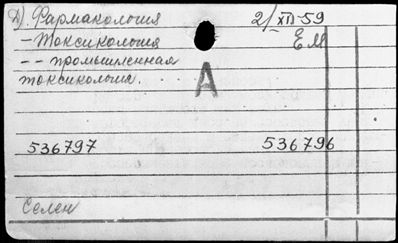 Д). Фармакология 2/XII-59
– Токсикология ЕМ
– – промышленная
токсикология.
А
536797 536796
Селен